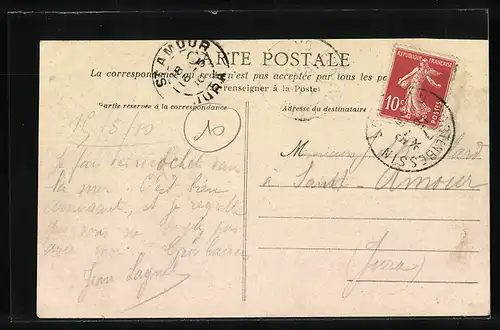 CARTE POSTALE
La correspondance au recto n'est pas acceptée par tous les pays
renseigner à la Poste)
Partie réservée à la correspondance
Adresse du destinataire
ST AMOUR
JURA
RÉPUBLIQUE FRANÇAISE
10c
POSTES
PORT-EN-BESSIN
15/5/10
10
Je fais des ricochet dans
la mer. C'est bien
amusant, et je regrette
que vous ne soyez pas
avec moi. Gros baisers
Jean
Monsieur
à Saint-Amour
(Jura)